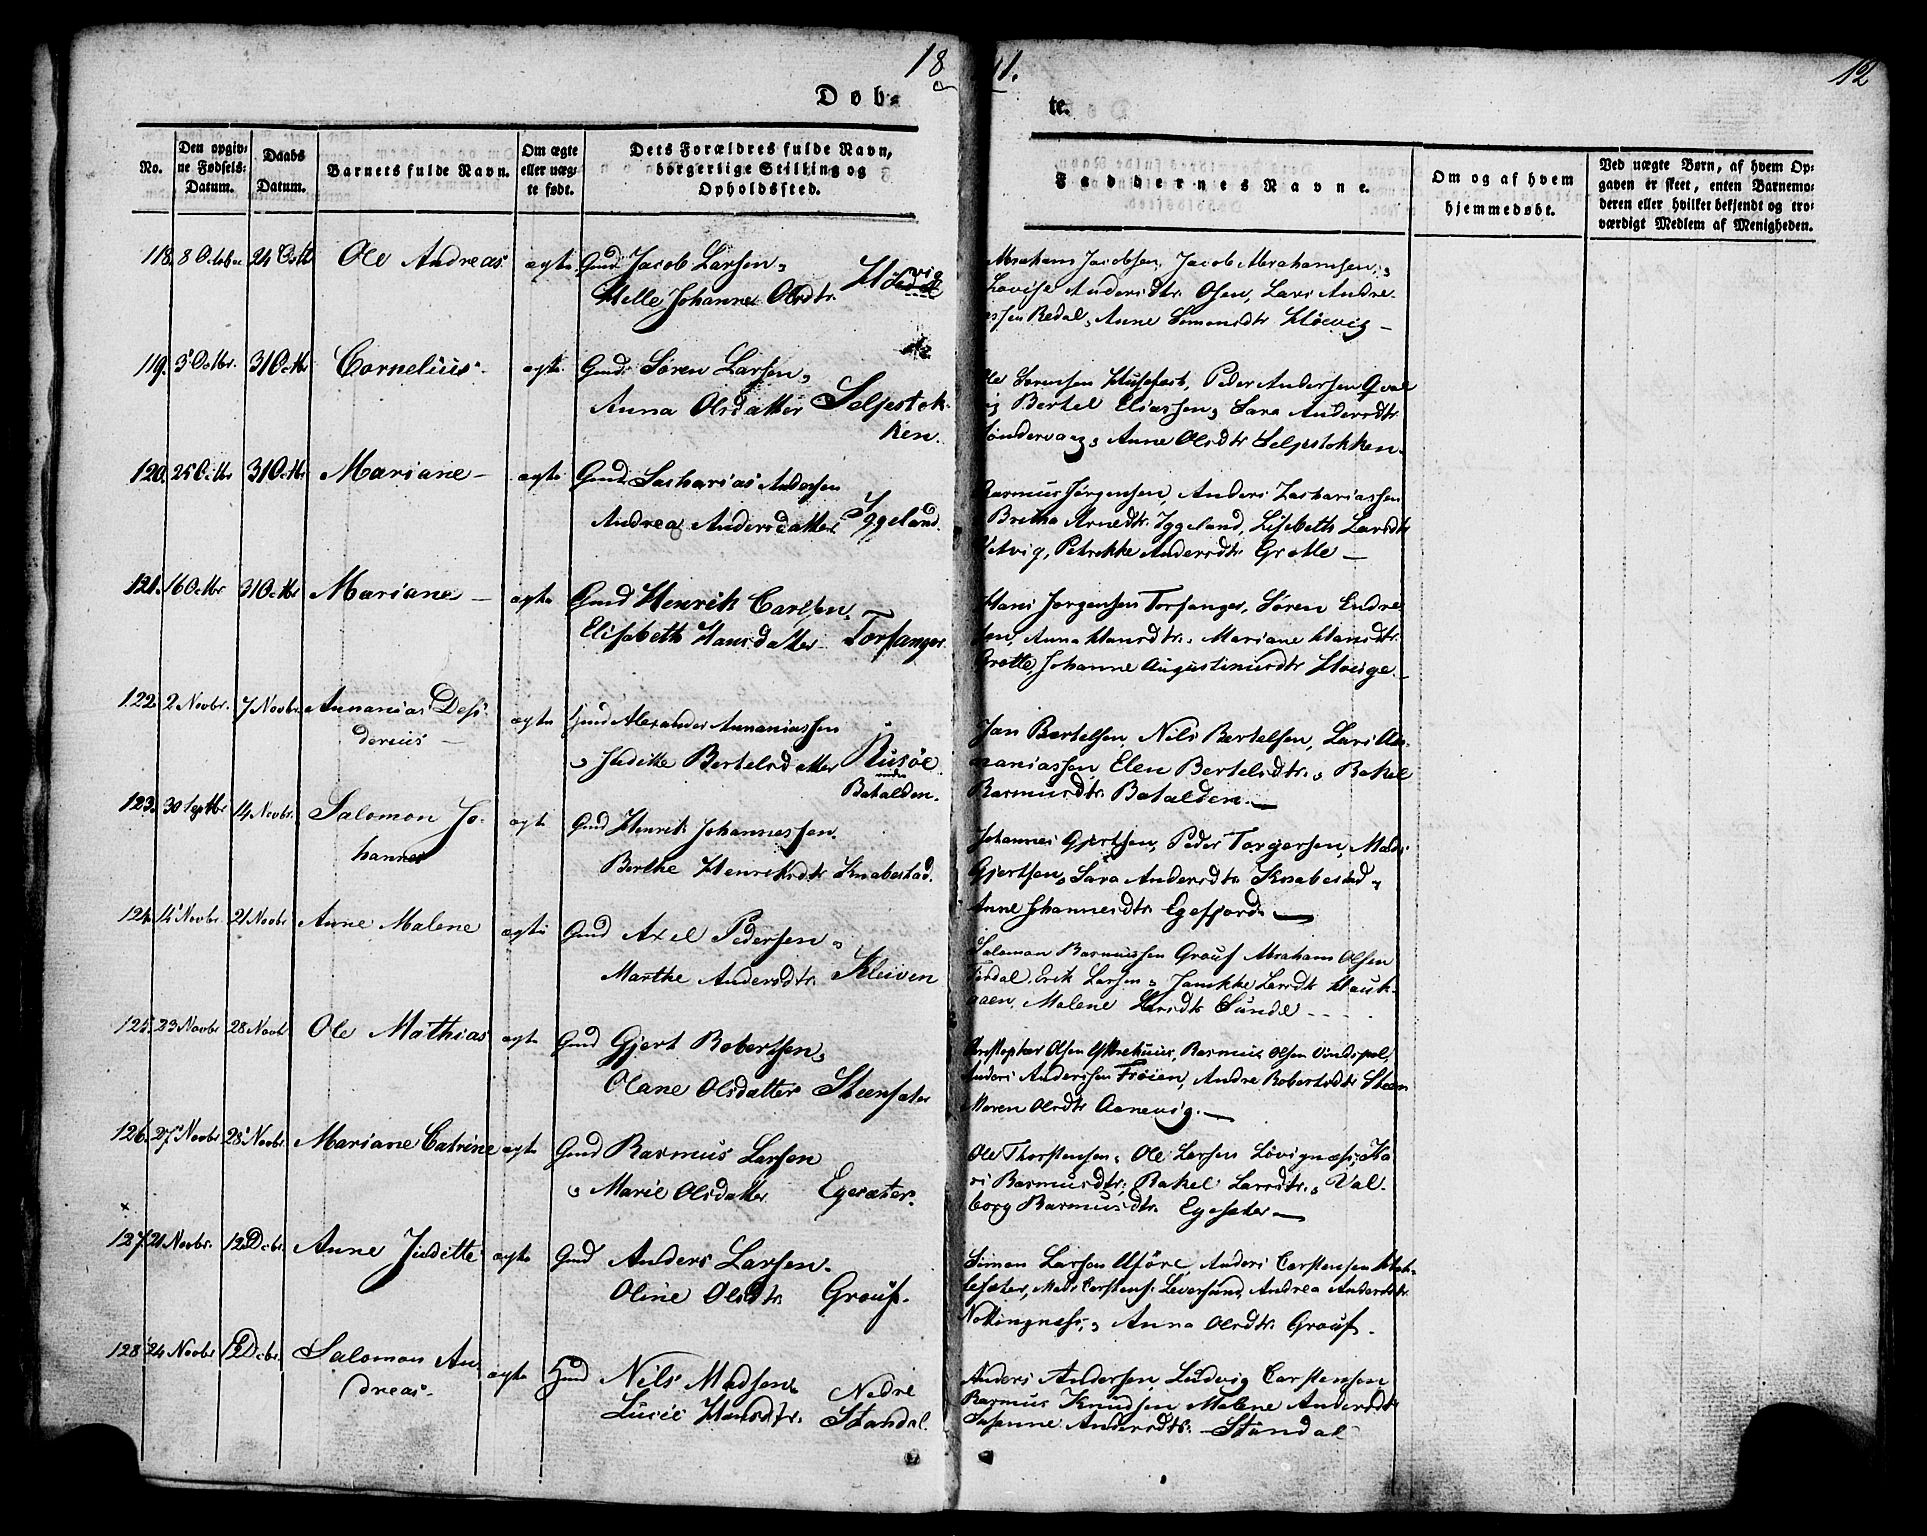 18
41.
12
Døb-
te.
No.
Den opgiv-
ne Fødsels-
Datum.
Daabs
Datum.
Barnets fulde Navn.
Om ægte
eller uæg-
te født.
Dets Forældres fulde Navn,
borgerlige Stilling og
Opholdssted.
Faddernes Navne.
Om og af hvem
hjemmedøbt.
Ved uægte Børn, af hvem Op-
gaven er skeet, enten Barnemo-
deren eller hvilket bekjendt og tro-
værdigt Medlem af Menigheden.
118. 8 October 24 Octbr Ole Andreas ægte Gmd Jacob Larsen,
Helle Johanne Olsdtr.
Abraham Jacobsen, Jacob Abrahamsen,
Lovise Andersdtr. Osen, Lars Andre-
assen Redal, Anne Simonsdtr Høevig
119. 3 Octbr. 31 Octbr Cornelius. ægte Gmd Søren Larsen,
Anna Olsdatter Seljestok-
ken.
Ole Sørensen Husefest, Peder Andersen Qval
Bertel Eliassen, Sara Andersdtr.
Anne Olsdtr Seljestokken.
120. 25 Octbr 31 Octbr Mariane ægte Gmd Sacharias Andersen
Andrea Andersdatter Iggeland.
Rasmus Jørgensen, Anders Zachariassen
Brethe Arnedtr. Iggeland, Lisebeth Larsdtr
Petrikke Andersdtr Grotle
121. 16 Octbr 31 Octbr Mariane ægte Gmd Henrik Carlsen,
Elisabeth Hansdatter Torfanger
Hans Jørgensen Torfanger, Søren Endre
sen, Anna Hansdtr., Mariane Hansdtr.
Grotle, Johanne Augustinusdtr Houge.
122. 2 Novbr. 7 Novbr. Annanias Desi-
derius ægte Gmd Alexander Annaniassen
Juditte Bertelsdatter Rusøe
under
Batalden.
Jan Bertelsen, Nils Bertelsen, Lars An-
naniassen, Elen Bertelsdtr., Rakel
Rasmusdtr. Batalden.
123. 30 Septbr 14 Novbr. Salomon Jo-
hannes ægte Gmd Henrik Johannessen.
Berthe Henriksdtr Knabestad.
Johannes Gjertsen, Peder Torgersen, Mads
Gjertsen, Sara Andersdtr Knabestad,
Anne Johannesdtr. Egefjord.
124. 14 Novbr. 21 Novbr Anne Malene ægte Gmd Axel Pedersen,
Marthe Andersdtr. Kleiven
Salomon Rasmussen Grouf Abraham Olsen
Erik Larsen, Jannikke Larsdtr Hauk-
aaen, Malene Larsdtr Sunde
125. 23 Novbr 28 Novbr Ole Mathias ægte Gmd Gjert Robertsen,
Olane Olsdatter Steensæter
Christopher Olsen Ystrehuus, Rasmus Olsen Vindspol,
Anders Andersen Frøien, Andre Robertsdtr Steen
Maren Olsdtr Aanevig.
126. 27 Novbr 28 Novbr. Mariane Catrine ægte Gmd Rasmus Larsen
Marie Olsdatter Egesæter.
Ole Thorstensen, Ole Larsen Løvignæss, Ka-
ri Rasmusdtr. Rakel Larsdtr., Val-
borg Rasmusdtr. Egesæter
127. 21 Novbr. 12 Dcbr. Anne Juditte ægte Gmd Anders Larsen.
Oline Olsdtr. Grouf.
Simon Larsen Uføre, Anders Carstensen
Mads Carstens. Leversund, Andrea Andersdtr.
Nottingness, Anna Olsdtr. Grouf.
128. 24 Novbr 12 Dcbr. Salomon An-
dreas. ægte Gmd Nils Madsen,
Lucie Hansdtr. Nedre
Standal.
Anders Andersen, Ludvig Carstensen
Rasmus Knudsen Malene Andersdtr
Susanne Andersdtr. Standal